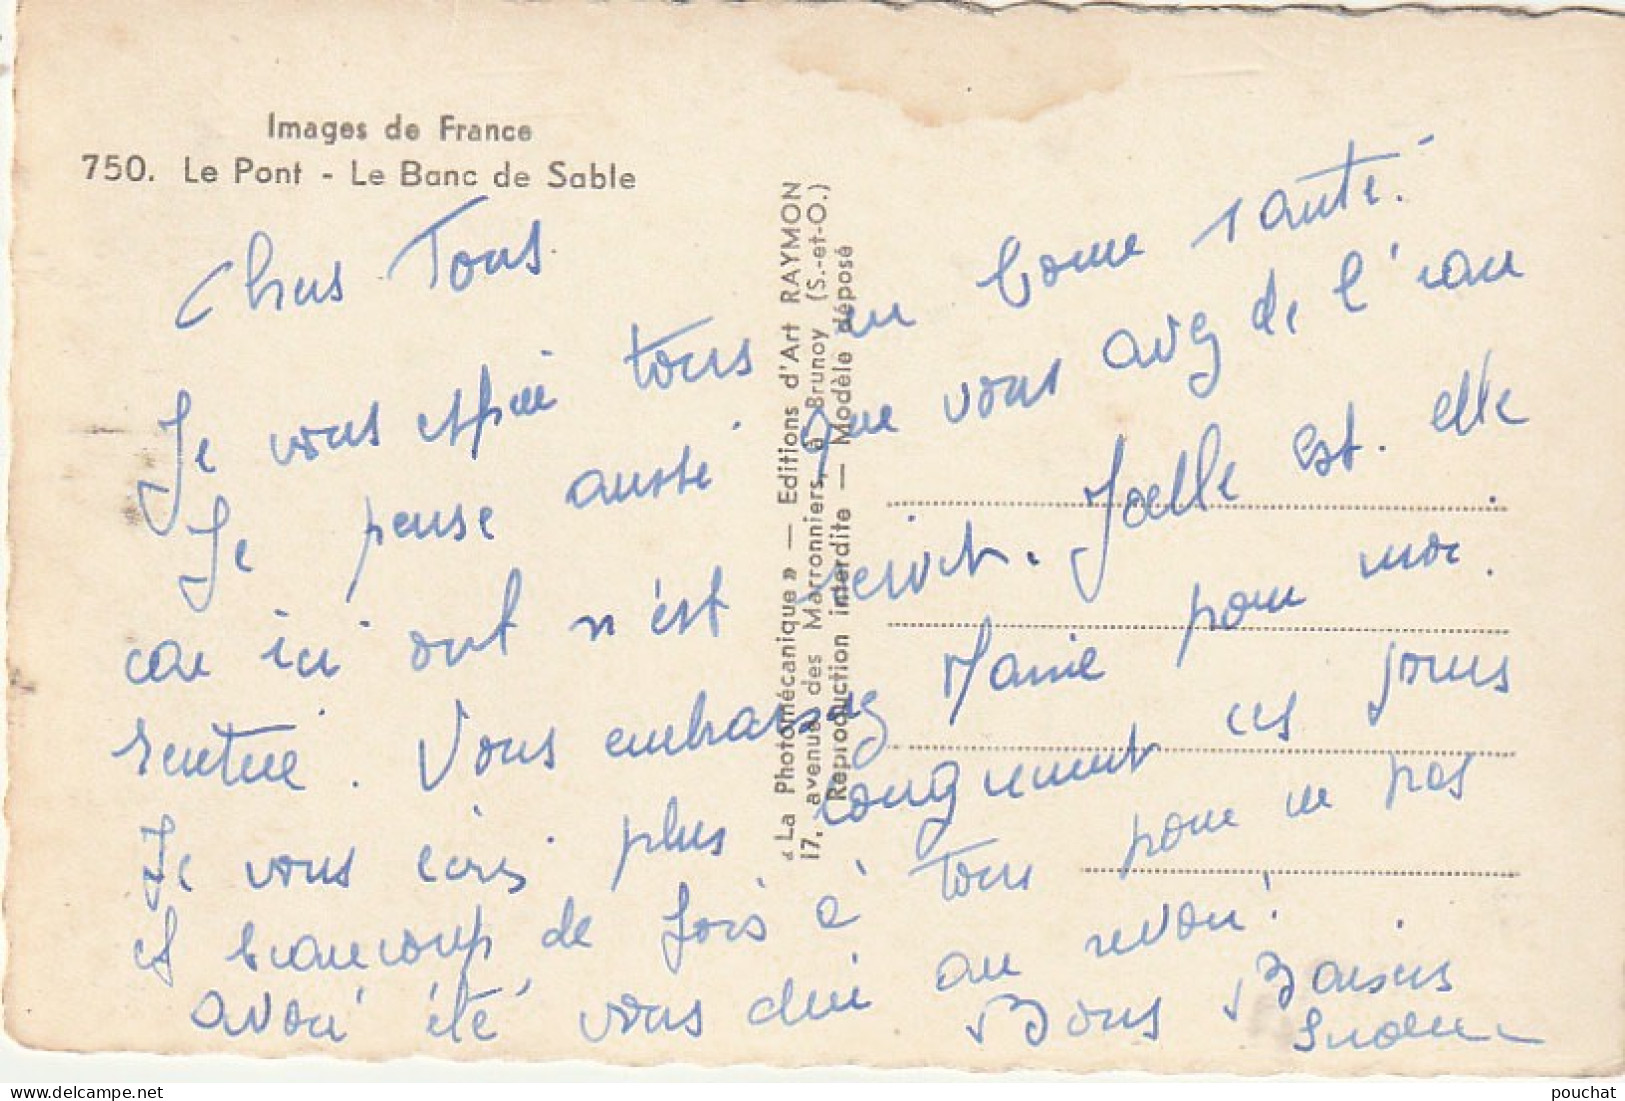 Images de France
750. Le Pont - Le Banc de Sable
« La Photomécanique » — Editions d'Art RAYMON
17, avenue des Marronniers, à Brunoy (S.-et-O.)
Reproduction interdite — Modèle déposé
Chers Tous
Je vous espère tous en bonne santé.
Je pense aussi que vous avez de l'eau
car ici ont n'est servit. Joelle est. elle
rentrée. Vous embrassez Mamie pour moi.
Je vous écris plus longuement ces jours
et beaucoup de fois à tous pour ne pas
avoir été vous dire au revoir!
Bons Baisers
pouchat